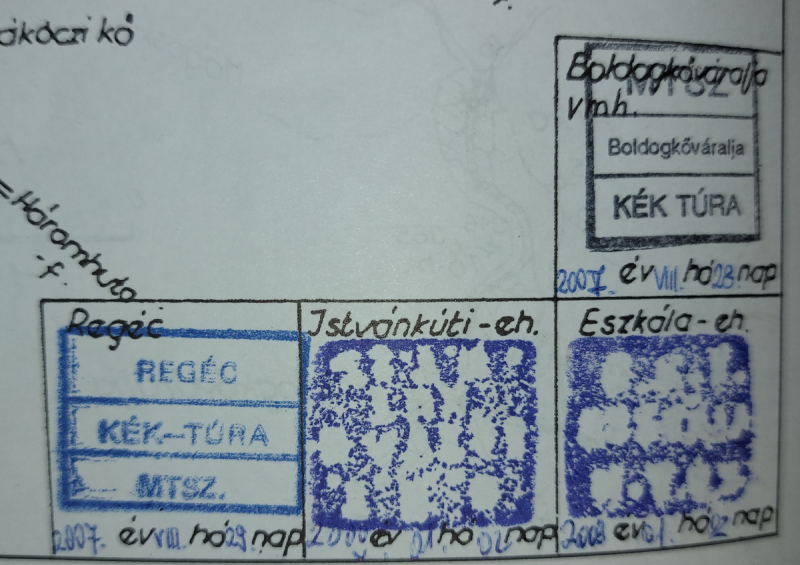 ákóczi kő
Boldogkőváralja
vmh.
MTSZ
Boldogkőváralja
KÉK TÚRA
2007. év VIII. hó 28. nap
= Háromhuta
-f.
Regéc
REGÉC
KÉK-TÚRA
MTSZ.
2007. év VIII. hó 29. nap
Istvánkúti-eh.
év 01 hó 02 nap
Eszkála-eh.
2008 év 01. hó 02 nap